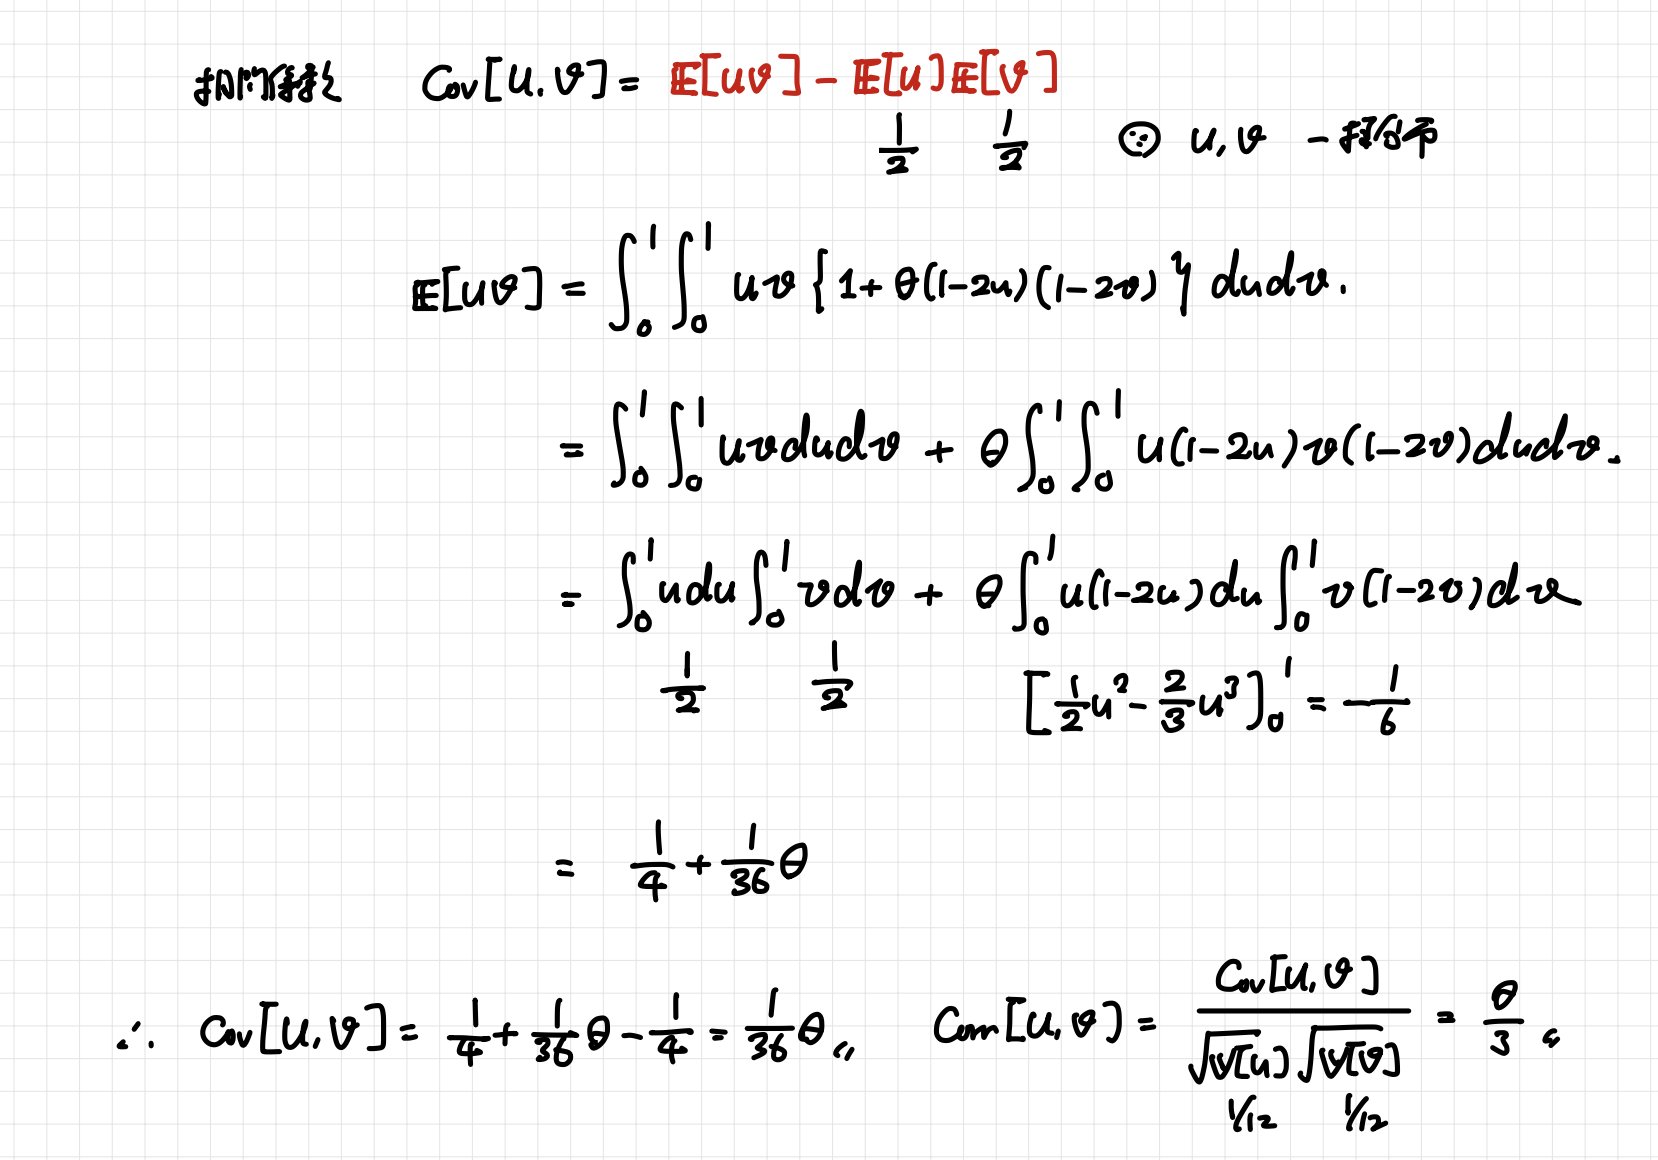 相関係数 Cov[U, V] = E[UV] - E[U]E[V]
1/2 1/2 ∵ U, V 一様分布
E[UV] = ∫₀¹ ∫₀¹ uv { 1 + θ(1-2u)(1-2v) } dudv.
= ∫₀¹ ∫₀¹ uv dudv + θ ∫₀¹ ∫₀¹ u(1-2u) v(1-2v) dudv.
= ∫₀¹ u du ∫₀¹ v dv + θ ∫₀¹ u(1-2u) du ∫₀¹ v(1-2v) dv
1/2 1/2 [1/2 u² - 2/3 u³]₀¹ = -1/6
= 1/4 + 1/36 θ
∴ Cov[U, V] = 1/4 + 1/36 θ - 1/4 = 1/36 θ〃 Corr[U, V] = Cov[U, V] / √V[U] √V[V] = θ/3 〃
1/12 1/12